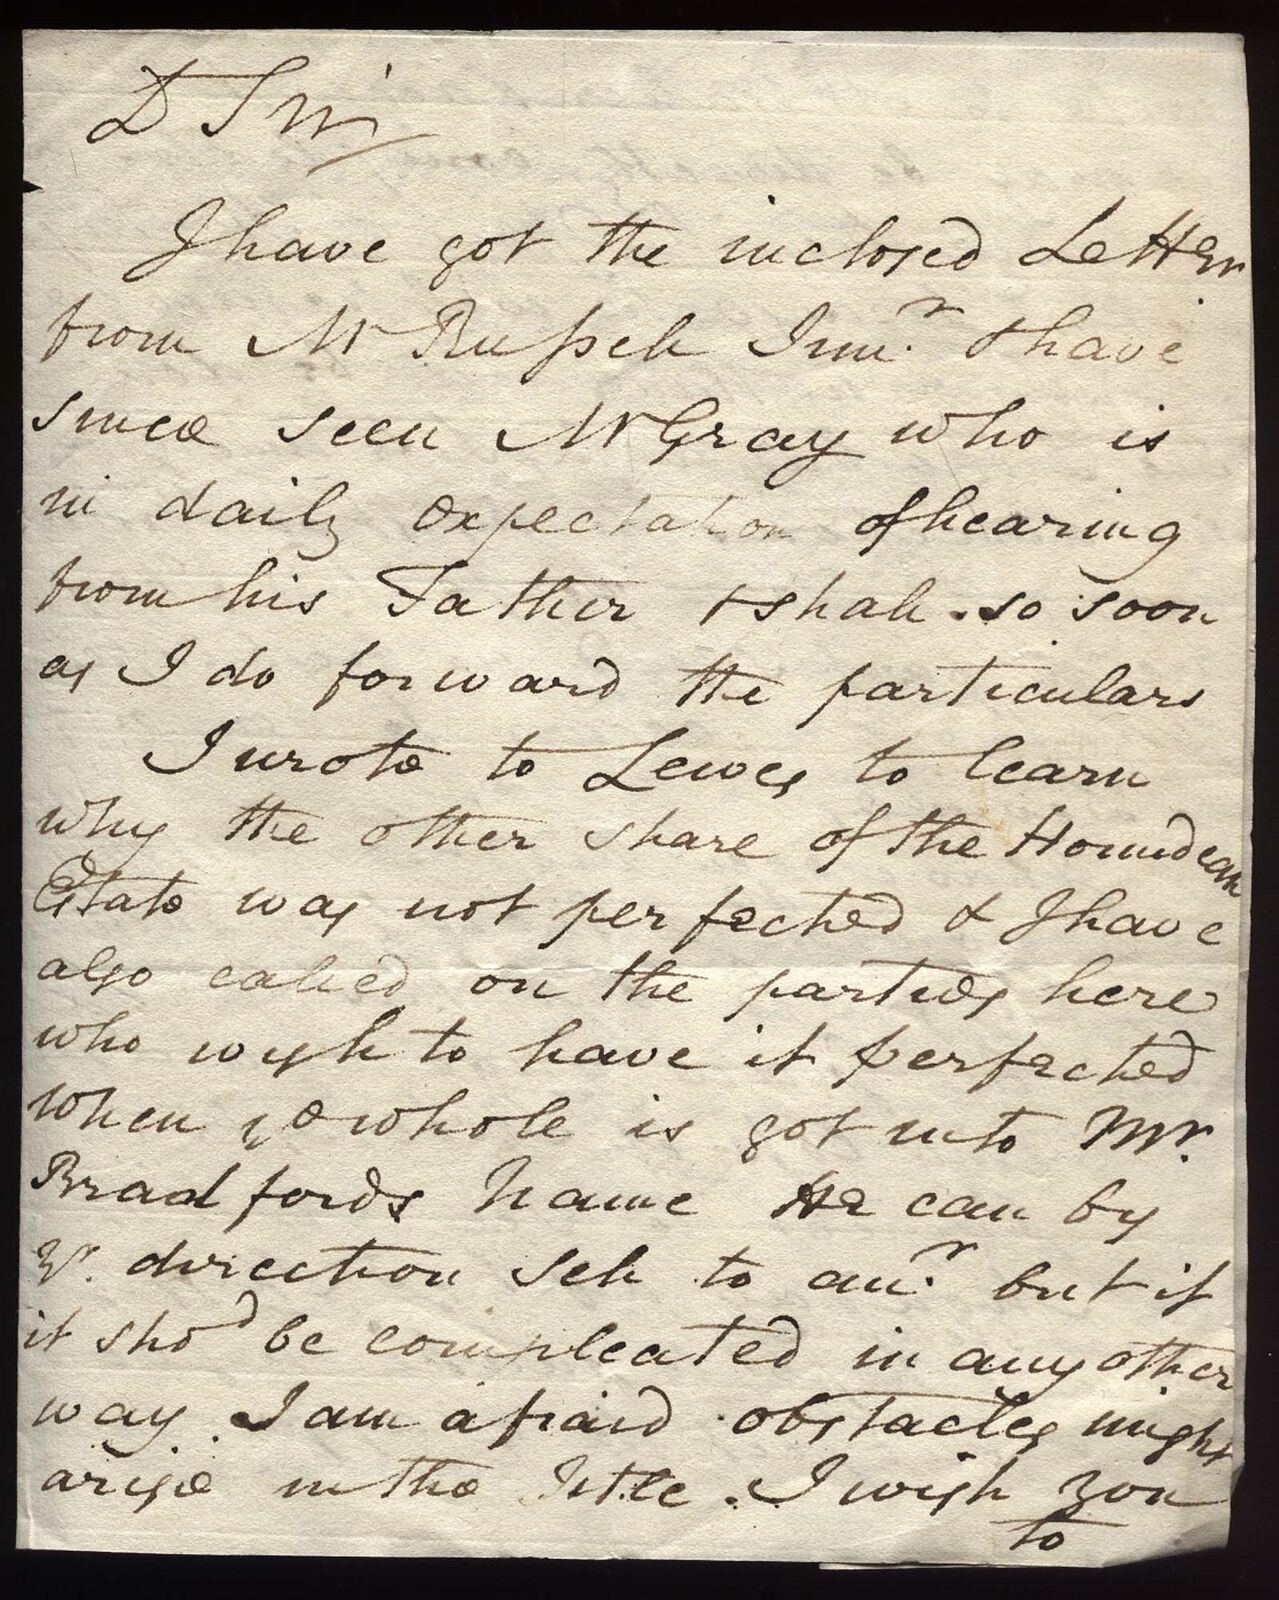 D Sir
I have got the inclosed Letter
from Mr Russell Junr. & have
since seen Mr Gray who is
in daily expectation of hearing
from his Father & shall so soon
as I do forward the particulars
I wrote to Lewes to learn
why the other share of the Houndean
Estate was not perfected & I have
also called on the parties here
who wish to have it perfected
when ye whole is got into Mr.
Bradfords Name He can by
Yr. direction sell to anr. but if
it shod be compleated in any other
way I am afraid obstacles might
arise in the Title. I wish you
to